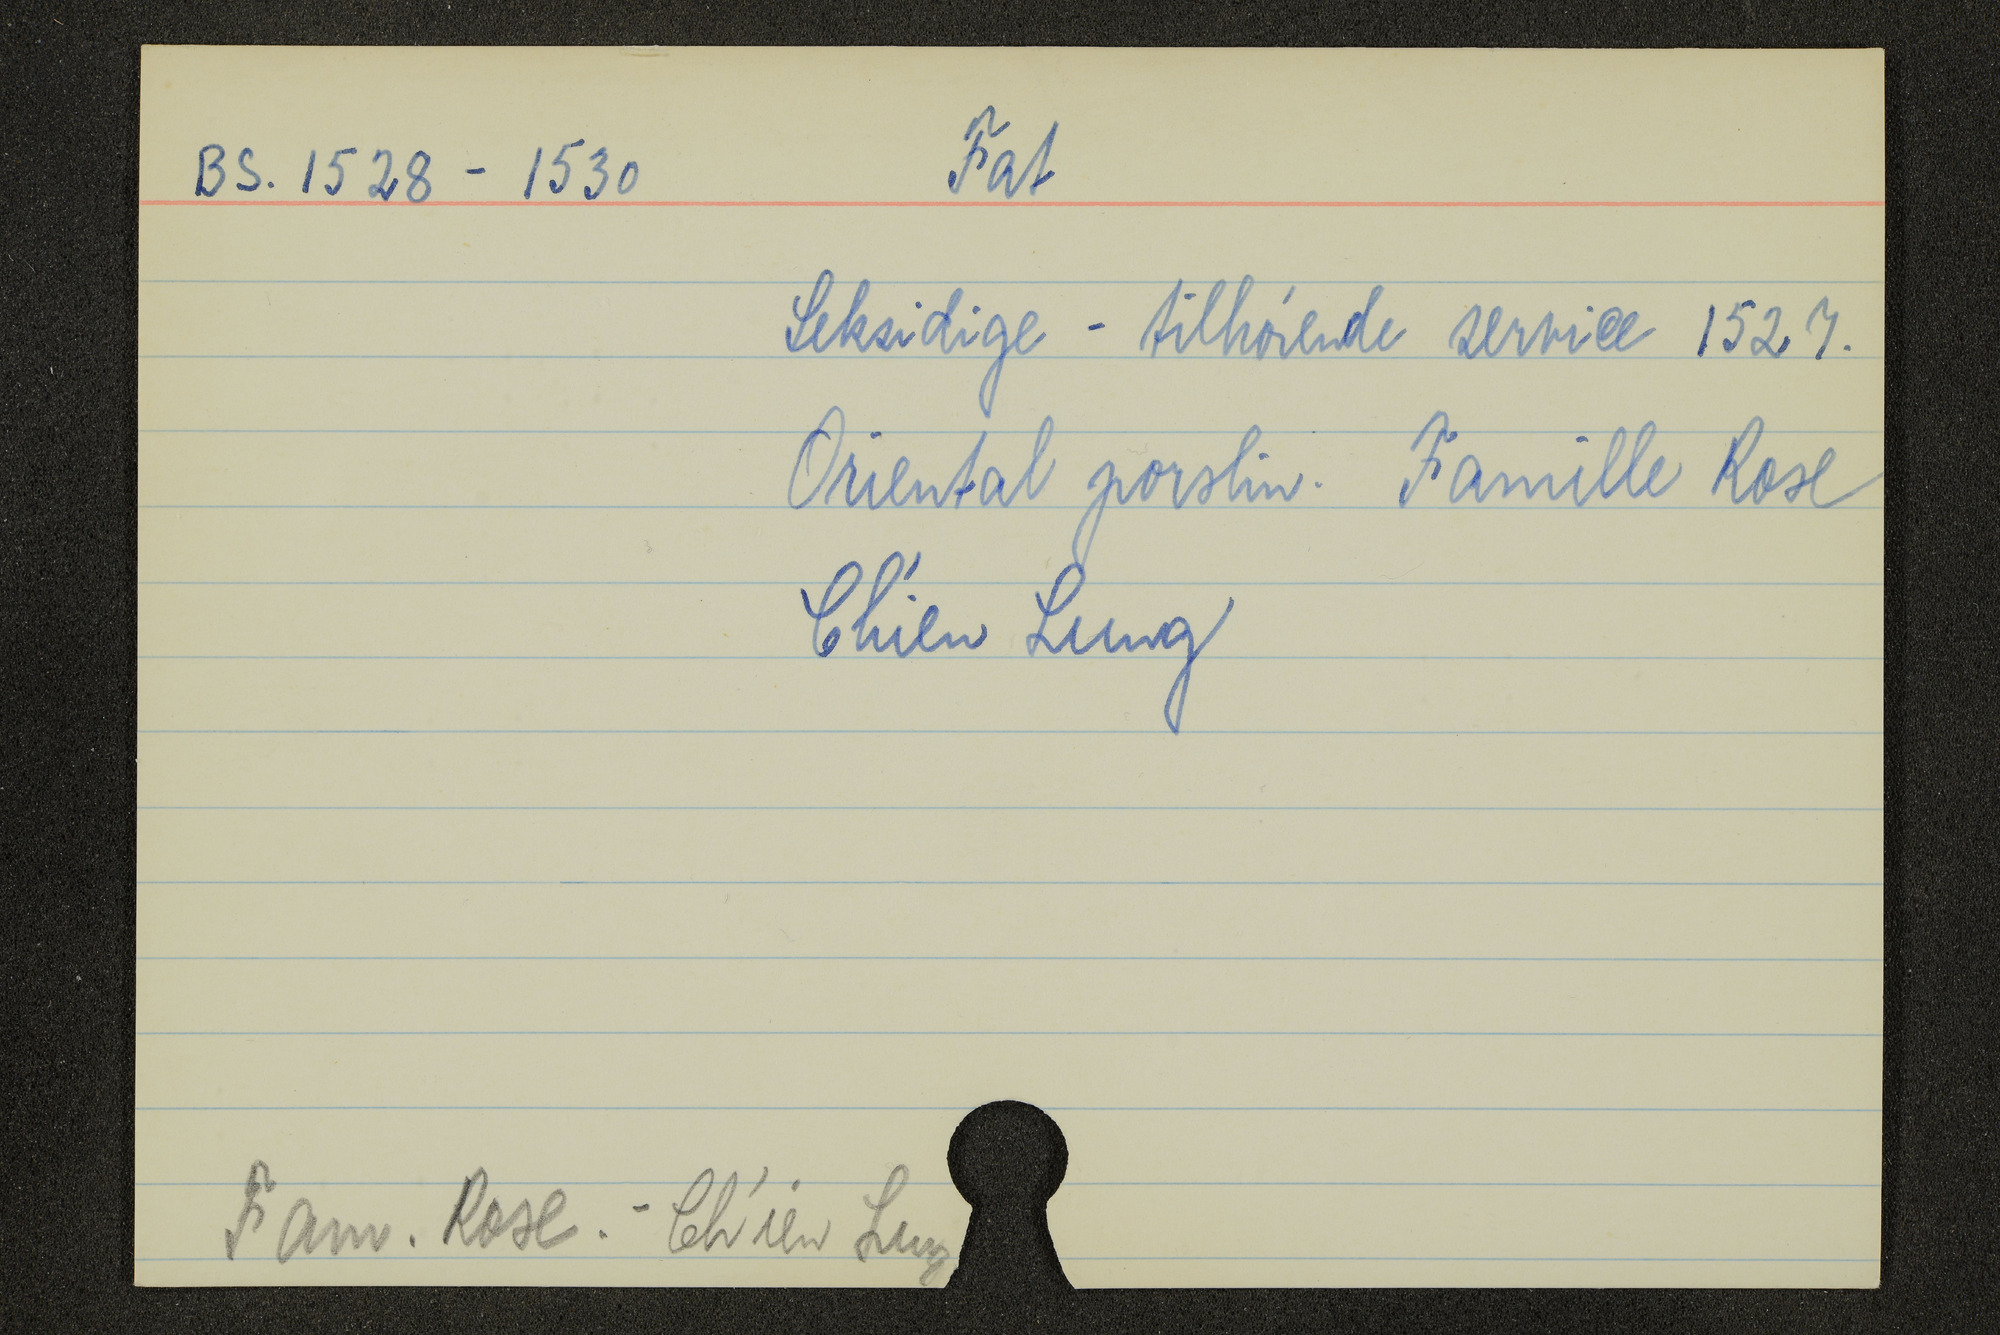 BS. 1528 - 1530 Fat
Seksidige - tilhórende service 1527.
Oriental porslin. Famille Rose
Ch'ien Lung
Fam. Rose. - Ch'ien Lung